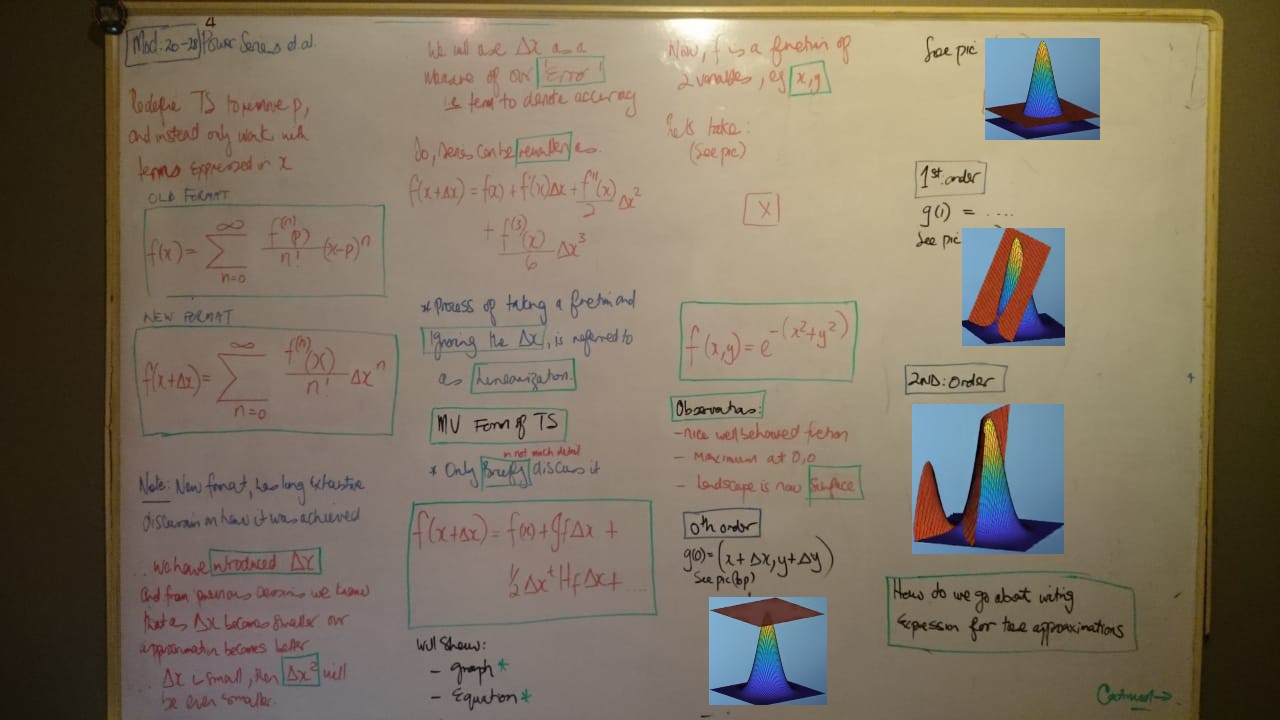 4
Mod: 20-28) Power Series et al.
Redefine TS to remove p,
and instead only work with
terms expressed in x
OLD FORMAT
f(x) = ∑ n=0 ∞ f⁽ⁿ⁾(p)/n! (x-p)ⁿ
NEW FORMAT
f(x+Δx) = ∑ n=0 ∞ f⁽ⁿ⁾(x)/n! Δxⁿ
Note: New format, has long extensive
discussion on how it was achieved
... we have introduced Δx
and from previous lessons we know
that as Δx becomes smaller our
approximation becomes better
.. Δx is small, then Δx² will
be even smaller.
We will use Δx as a
measure of our 'Error'
ie term to denote accuracy
So, series can be rewritten as.
f(x+Δx) = f(x) + f'(x)Δx + f''(x)/2 Δx²
+ f⁽³⁾(x)/6 Δx³
* Process of taking a function and
ignoring the Δx, is referred to
as Linearization.
MV Form of TS
in not much detail
* Only Briefly discuss it
f(x+Δx) = f(x) + Jf Δx +
½ Δxᵗ Hf Δx + ...
Will show:
- graph *
- Equation *
Now, f is a function of
2 variables, eg x,y
Lets take:
(See pic)
X
f(x,y) = e^-(x²+y²)
Observations:
- nice well behaved function
- Maximum at 0,0
- Landscape is now Surface
0th order
g(0) = (x+Δx, y+Δy)
See pic (top)
See pic
1st order
g(1) = ....
See pic
2ND: Order
How do we go about writing
expression for the approximations
Continued →